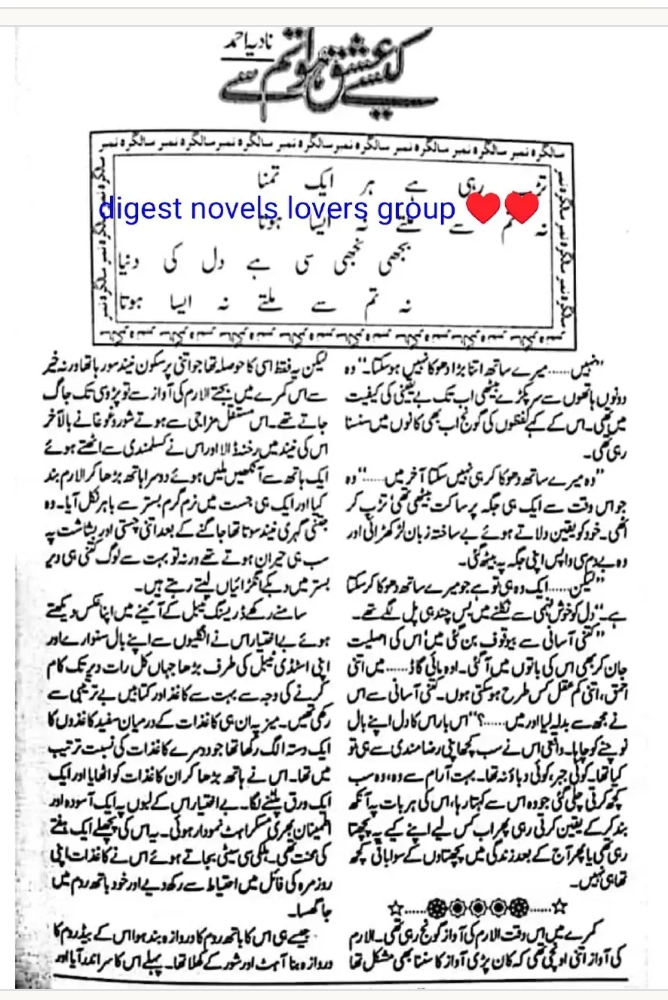 نادیہ احمد
کیسے عشق ہوا تم سے
سالگرہ نمبر سالگرہ نمبر سالگرہ نمبر سالگرہ نمبر سالگرہ نمبر سالگرہ نمبر سالگرہ نمبر
تڑپ رہی ہے ہر ایک تمنا
digest novels lovers group ❤️❤️
نہ تم سے ملتے نہ ایسا ہوتا
بجھی بجھی سی ہے دل کی دنیا
نہ تم سے ملتے نہ ایسا ہوتا
”نہیں...... میرے ساتھ اتنا بڑا دھوکا نہیں ہوسکتا۔“ وہ
دونوں ہاتھوں سے سر پکڑے بیٹھی اب تک بے یقینی کی کیفیت
میں تھی۔ اس کے کہے لفظوں کی گونج اب بھی کانوں میں سنسنا
رہی تھی۔
”وہ میرے ساتھ دھوکا کر ہی نہیں سکتا آخر میں......“ وہ
جو اس وقت سے ایک ہی جگہ پر ساکت بیٹھی تھی تڑپ کر
اٹھی۔ خود کو یقین دلاتے ہوئے بے ساختہ زبان لڑکھڑائی اور
وہ بے دم سی واپس اپنی جگہ پہ بیٹھ گئی۔
”لیکن...... ایک وہ ہی تو ہے جو میرے ساتھ دھوکا کرسکتا
ہے۔“ دل کو خوش فہمی سے نکلنے میں بس چند ہی پل لگے تھے۔
”کتنی آسانی سے بیوقوف بن گئی میں اس کی اصلیت
جان کر بھی اس کی باتوں میں آگئی۔ اوہ مائی گاڈ...... میں اتنی
احمق، اتنی کم عقل کس طرح ہوسکتی ہوں۔ کتنی آسانی سے اس
نے مجھ سے بدلہ لیا اور میں......؟“ اس بار اس کا دل اپنے بال
نوچنے کو چاہا۔ واقعی اس نے سب کچھ اپنی رضامندی سے ہی تو
کیا تھا۔ کوئی جبر کوئی دباؤ نہ تھا۔ بہت آرام سے وہ، وہ سب
کچھ کرتی چلی گئی جو وہ اس سے کہتا رہا، اس کی ہر بات پہ آنکھ
بند کرکے یقین کرتی رہی پھر اب کس لیے اپنے کیے پہ پچھتا
رہی تھی یا پھر آج کے بعد زندگی میں پچھتاوں کے سوا باقی کچھ
تھا ہی نہیں۔
کمرے میں اس وقت الارم کی آواز گونج رہی تھی۔ الارم
کی آواز اتنی اونچی تھی کہ کان پڑی آواز کا سننا بھی مشکل تھا
لیکن یہ فقط اسی کا حوصلہ تھا جو اتنی پرسکون نیند سو رہا تھا ورنہ خیر
سے اس کمرے میں بجتے الارم کی آواز سے تو پڑوسی تک جاگ
جاتے تھے۔ اس مستقل مزاجی سے ہوتے شور و غوغا نے بالآخر
اس کی نیند میں رخنہ ڈالا اور اس نے کسلمندی سے اٹھتے ہوئے
ایک ہاتھ سے آنکھیں ملتے ہوئے دوسرا ہاتھ بڑھا کر الارم بند
کیا اور ایک ہی جست میں نرم گرم بستر سے باہر نکل آیا۔ وہ
جتنی گہری نیند سوتا تھا جاگنے کے بعد اتنی چستی اور بشاشت پہ
سب ہی حیران ہوتے تھے ورنہ تو بہت سے لوگ کتنی ہی دیر
بستر میں دبکے انگڑائیاں لیتے رہتے ہیں۔
سامنے رکھے ڈریسنگ ٹیبل کے آئینے میں اپنا عکس دیکھتے
ہوئے بے اختیار اس نے انگلیوں سے اپنے بال سنوارے اور
اپنی اسٹڈی ٹیبل کی طرف بڑھا جہاں کل رات دیر تک کام
کرنے کی وجہ سے بہت سے کاغذ اور کتابیں بے ترتیبی سے
رکھی تھیں۔ میز پہ ان ہی کاغذات کے درمیان سفید کاغذوں کا
ایک دستہ الگ رکھا تھا جو دوسرے کاغذات کی نسبت ترتیب
میں تھا۔ اس نے ہاتھ بڑھا کر ان کاغذات کو اٹھایا اور ایک
ایک ورق پلٹنے لگا۔ بے اختیار اس کے لبوں پہ ایک آسودہ اور
اطمینان بھری مسکراہٹ نمودار ہوئی۔ یہ اس کی پچھلے ایک ہفتے
کی محنت تھی۔ ہلکی سی سیٹی بجاتے ہوئے اس نے کاغذات اپنی
روزمرہ کی فائل میں احتیاط سے رکھ دیے اور خود باتھ روم میں
جا گھسا۔
جیسے ہی اس کا باتھ روم کا دروازہ بند ہوا اس کے بیڈ روم کا
دروازہ بنا آہٹ اور شور کے کھلا تھا۔ پہلے اس کا سر اندر آیا اور